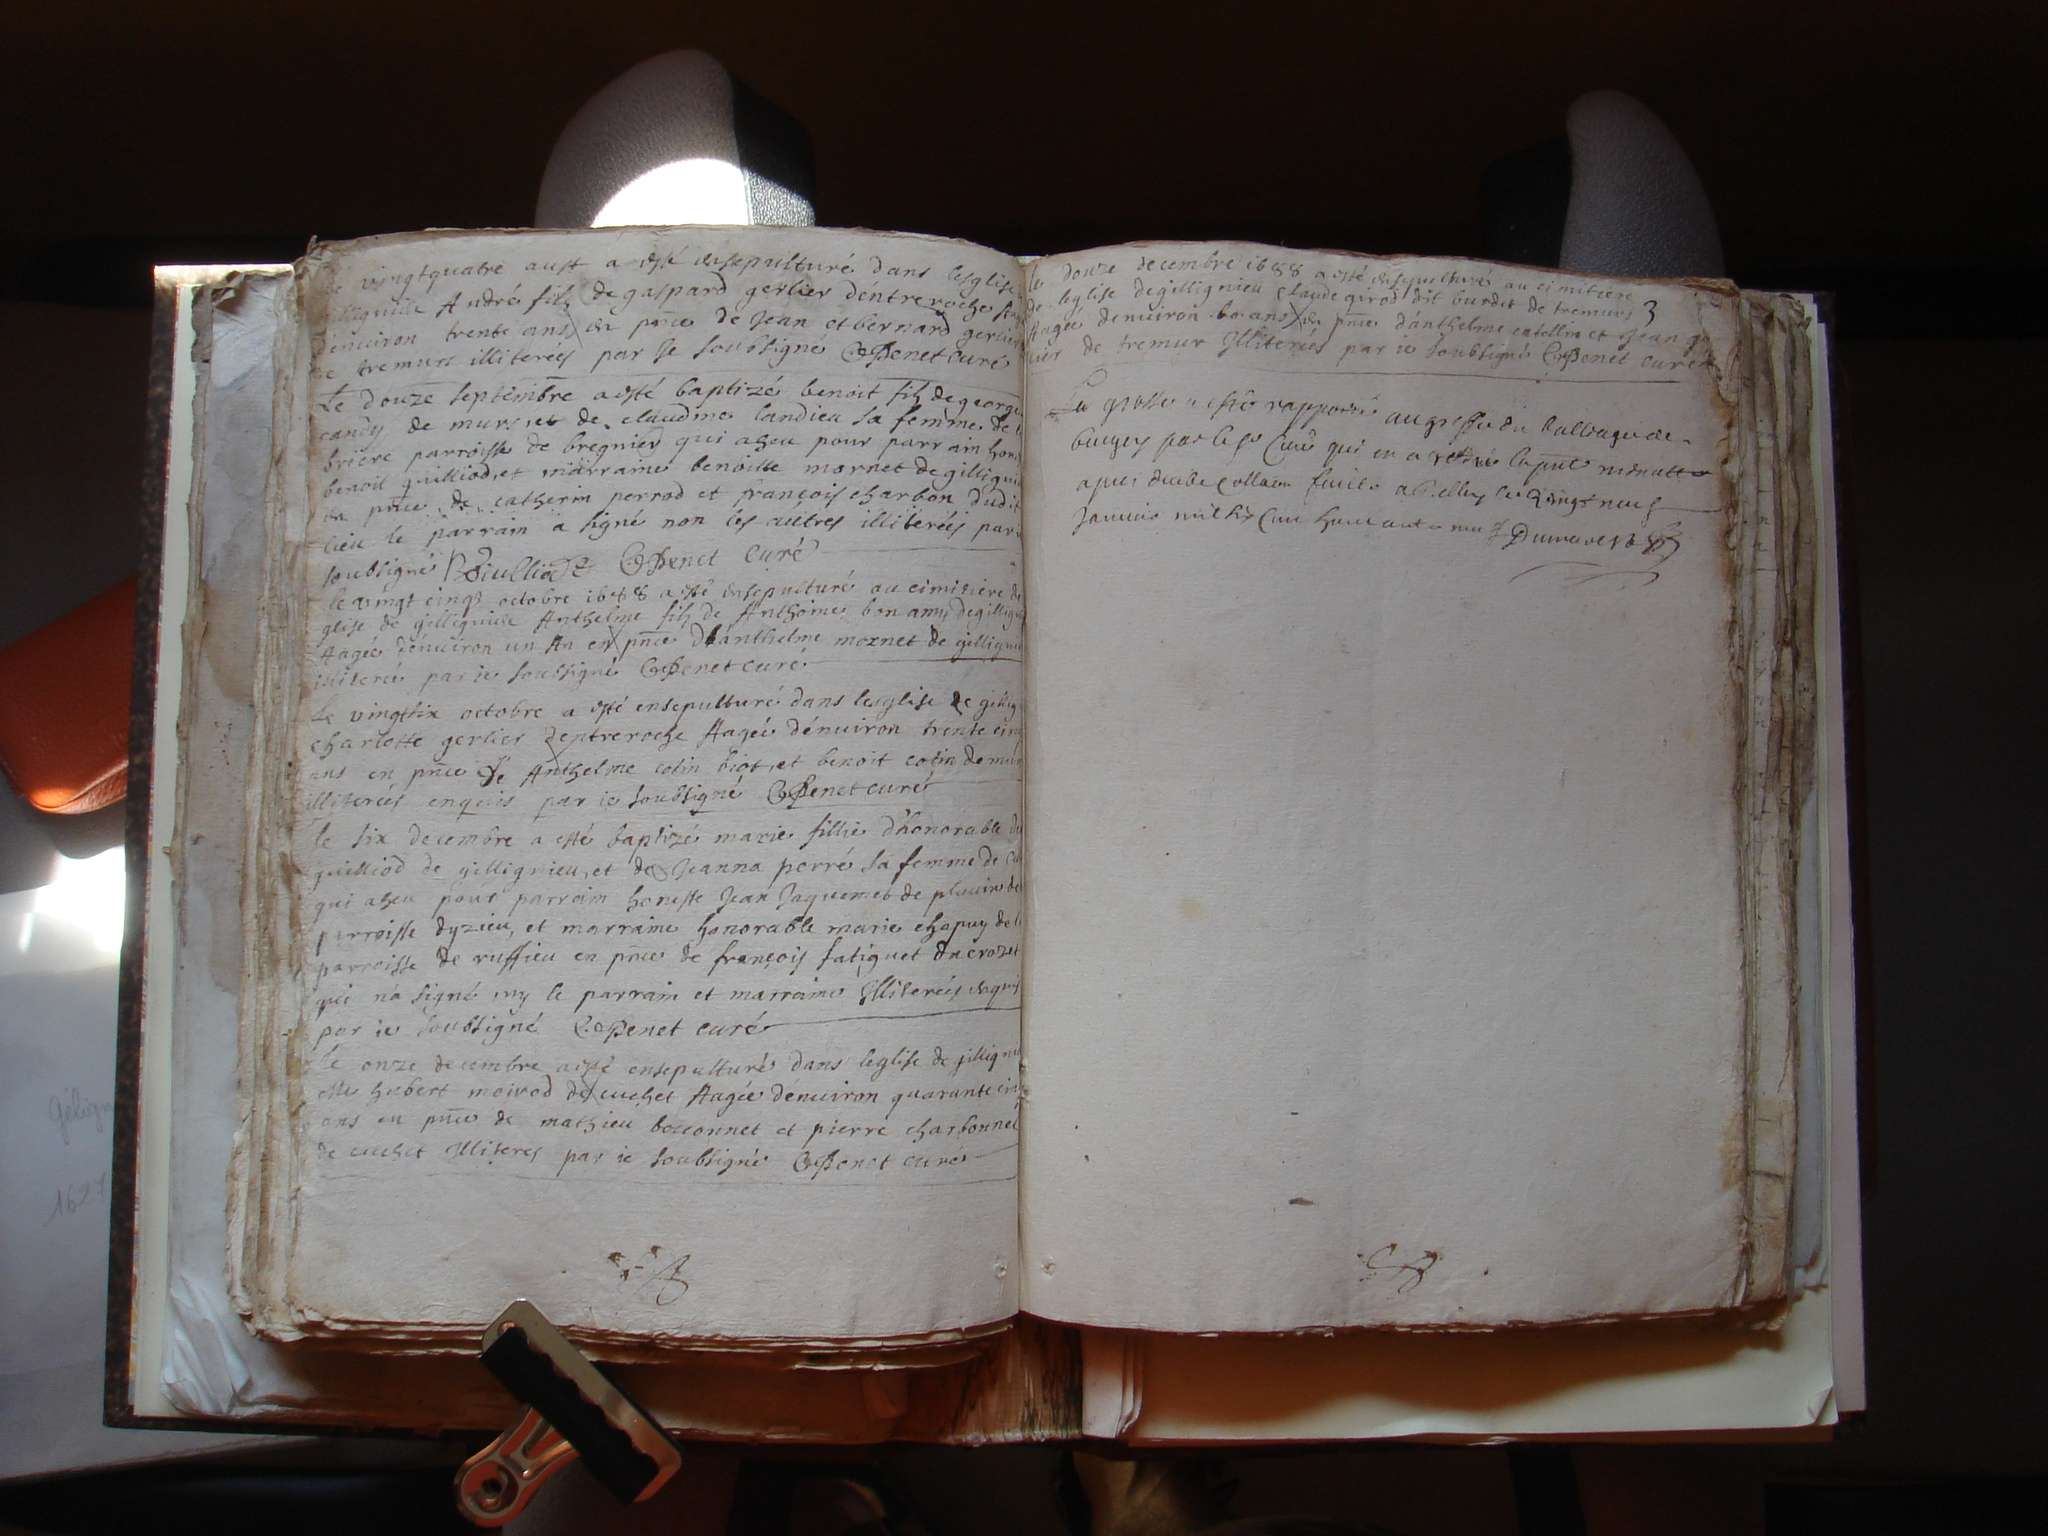 Le vingtquatre aust a esté ensepulturé dans lesglise
gilliguieu André filz de gaspard gerlier dentreroche
denuiron trente ans en pnce de Jean et bernard gerlier
de tremurs illiterées par je soubsigné Benet curé
Le douze septembre a esté baptizé benoit filz de george
candy de murs et de claudine landieu sa femme de
briere parroisse de bregnier qui a heu pour parrain hon
benoit guilliod, et marraine benoiste mornet de gilligui
en pnce de catherin perrod et françois charbon dudit
lieu le parrain a signé non les autres illiterées par
soubsigné Guilliod Benet curé
le vingt cinq octobre 1688 a esté ensepulturé au cimitiere de
glise de gilliguieu Anthelme filz de Anthoine bon amy de gilligui
Aagée denuiron un An en pnce d'anthelme mornet de gilligui
illiteré par ie soubsigné Benet curé
Le vingtsix octobre a esté ensepulturé dans lesglise de gillig
charlotte gerlier dentreroche Aagée dénuiron trente cin
ans en pnce de Anthelme colin biot, et benoit colin de mur
illiterées enquis par ie soubsigné Benet curé
le six decembre a esté baptizé marie fillie d'honorable
guilliod de gillignieu, et de Jeanna perré sa femme de
qui a heu pour parrain honeste Jean Jaquemet de
parroisse dyzieu, et marraine honorable marie chapuy de l
parroisse de ruffieu en pnce de françois fatiguet du crozet
qui n'a signé ny le parrain et marraine Illiterées enquis
par ie soubsigné Benet curé
le onze decembre a esté ensepulturé dans leglise de gilligni
hubert moirod de cuchet Aagée dénuiron quarante cin
ans en pnce de mathieu boconnet et pierre charbonnel
de cuchet Illiteres par ie soubsigné Benet curé
le douze decembre 1688 a esté ensepulturé au cimitiere
de leglise de gillignieu claude girod dit burdet de tremurs 3
Aagée denuiron ans en pnce danthelme catellin et Jean
de tremur Illiterées par ie soubsigné Benet curé
La grosse a esté rapportée au greffe du balliage de
bugey par le sr Curé qui en a retiré la pnte minutte
apres deube collaon faicte a Belley le vingt neuf
Janvier mil six cent huictante neuf